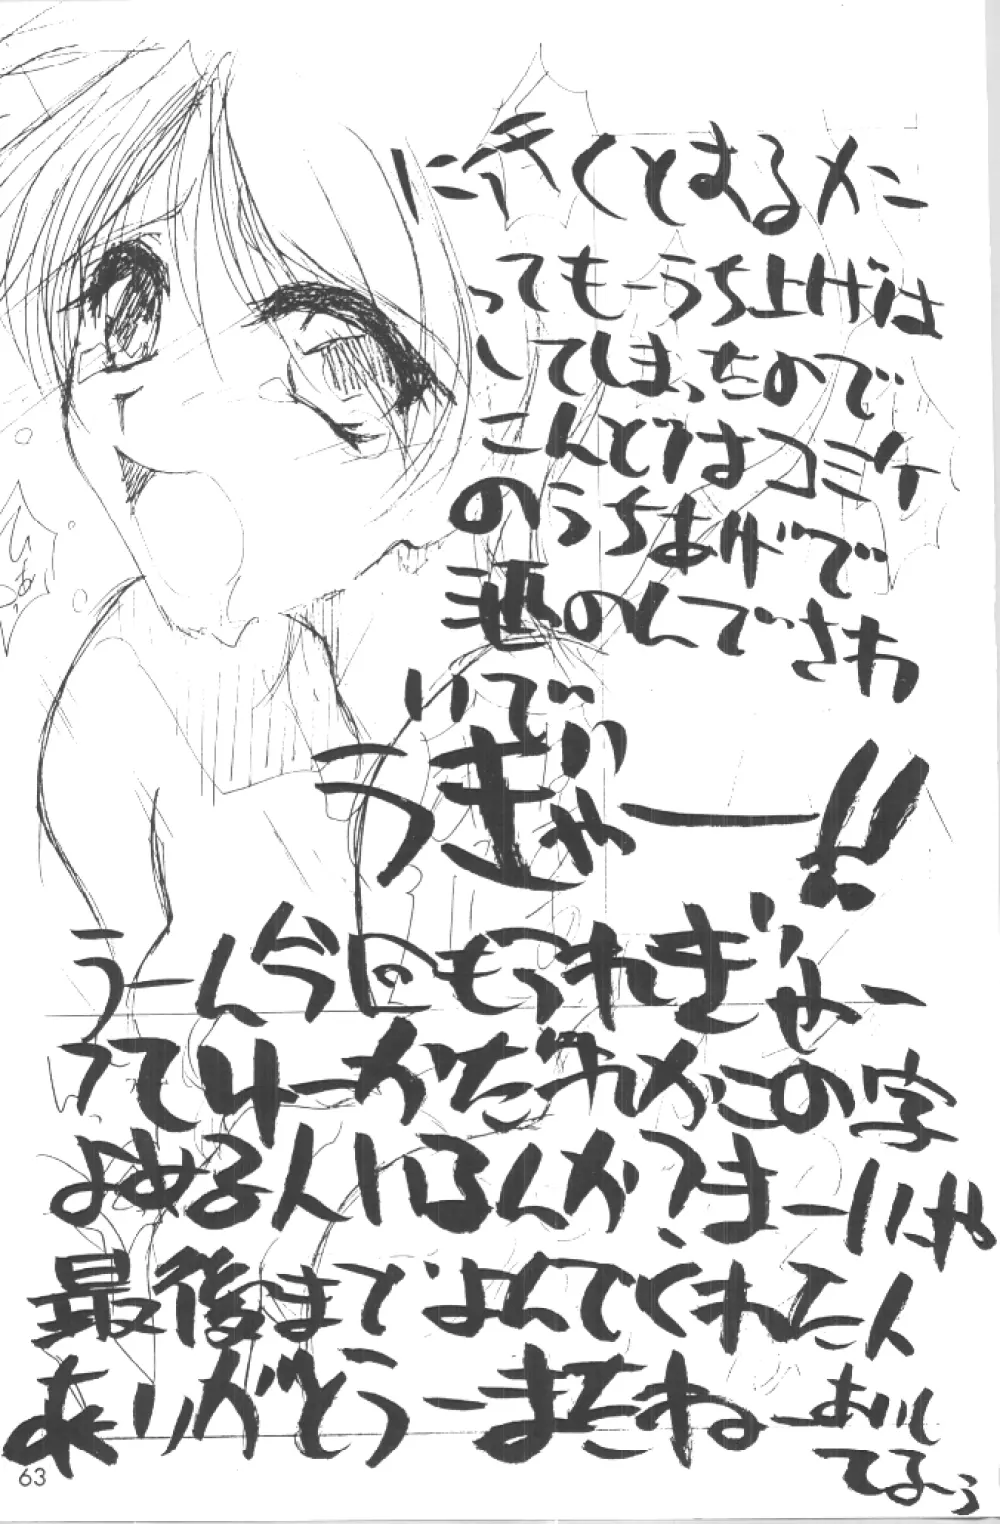 に行くとまるメン
ってもーうち上げは
してしまったので
こんどはコミケ
のうちあげで
酒のんでさわ
いで
うぎゃー!!
うーん今回もつれぎゃー
ってゆーかだれかこの字
よめる人いるんか?まーいーや
最後までよんでくれた人
ありがとうーまたねーあいし
てるーぅ
ひぁ
63